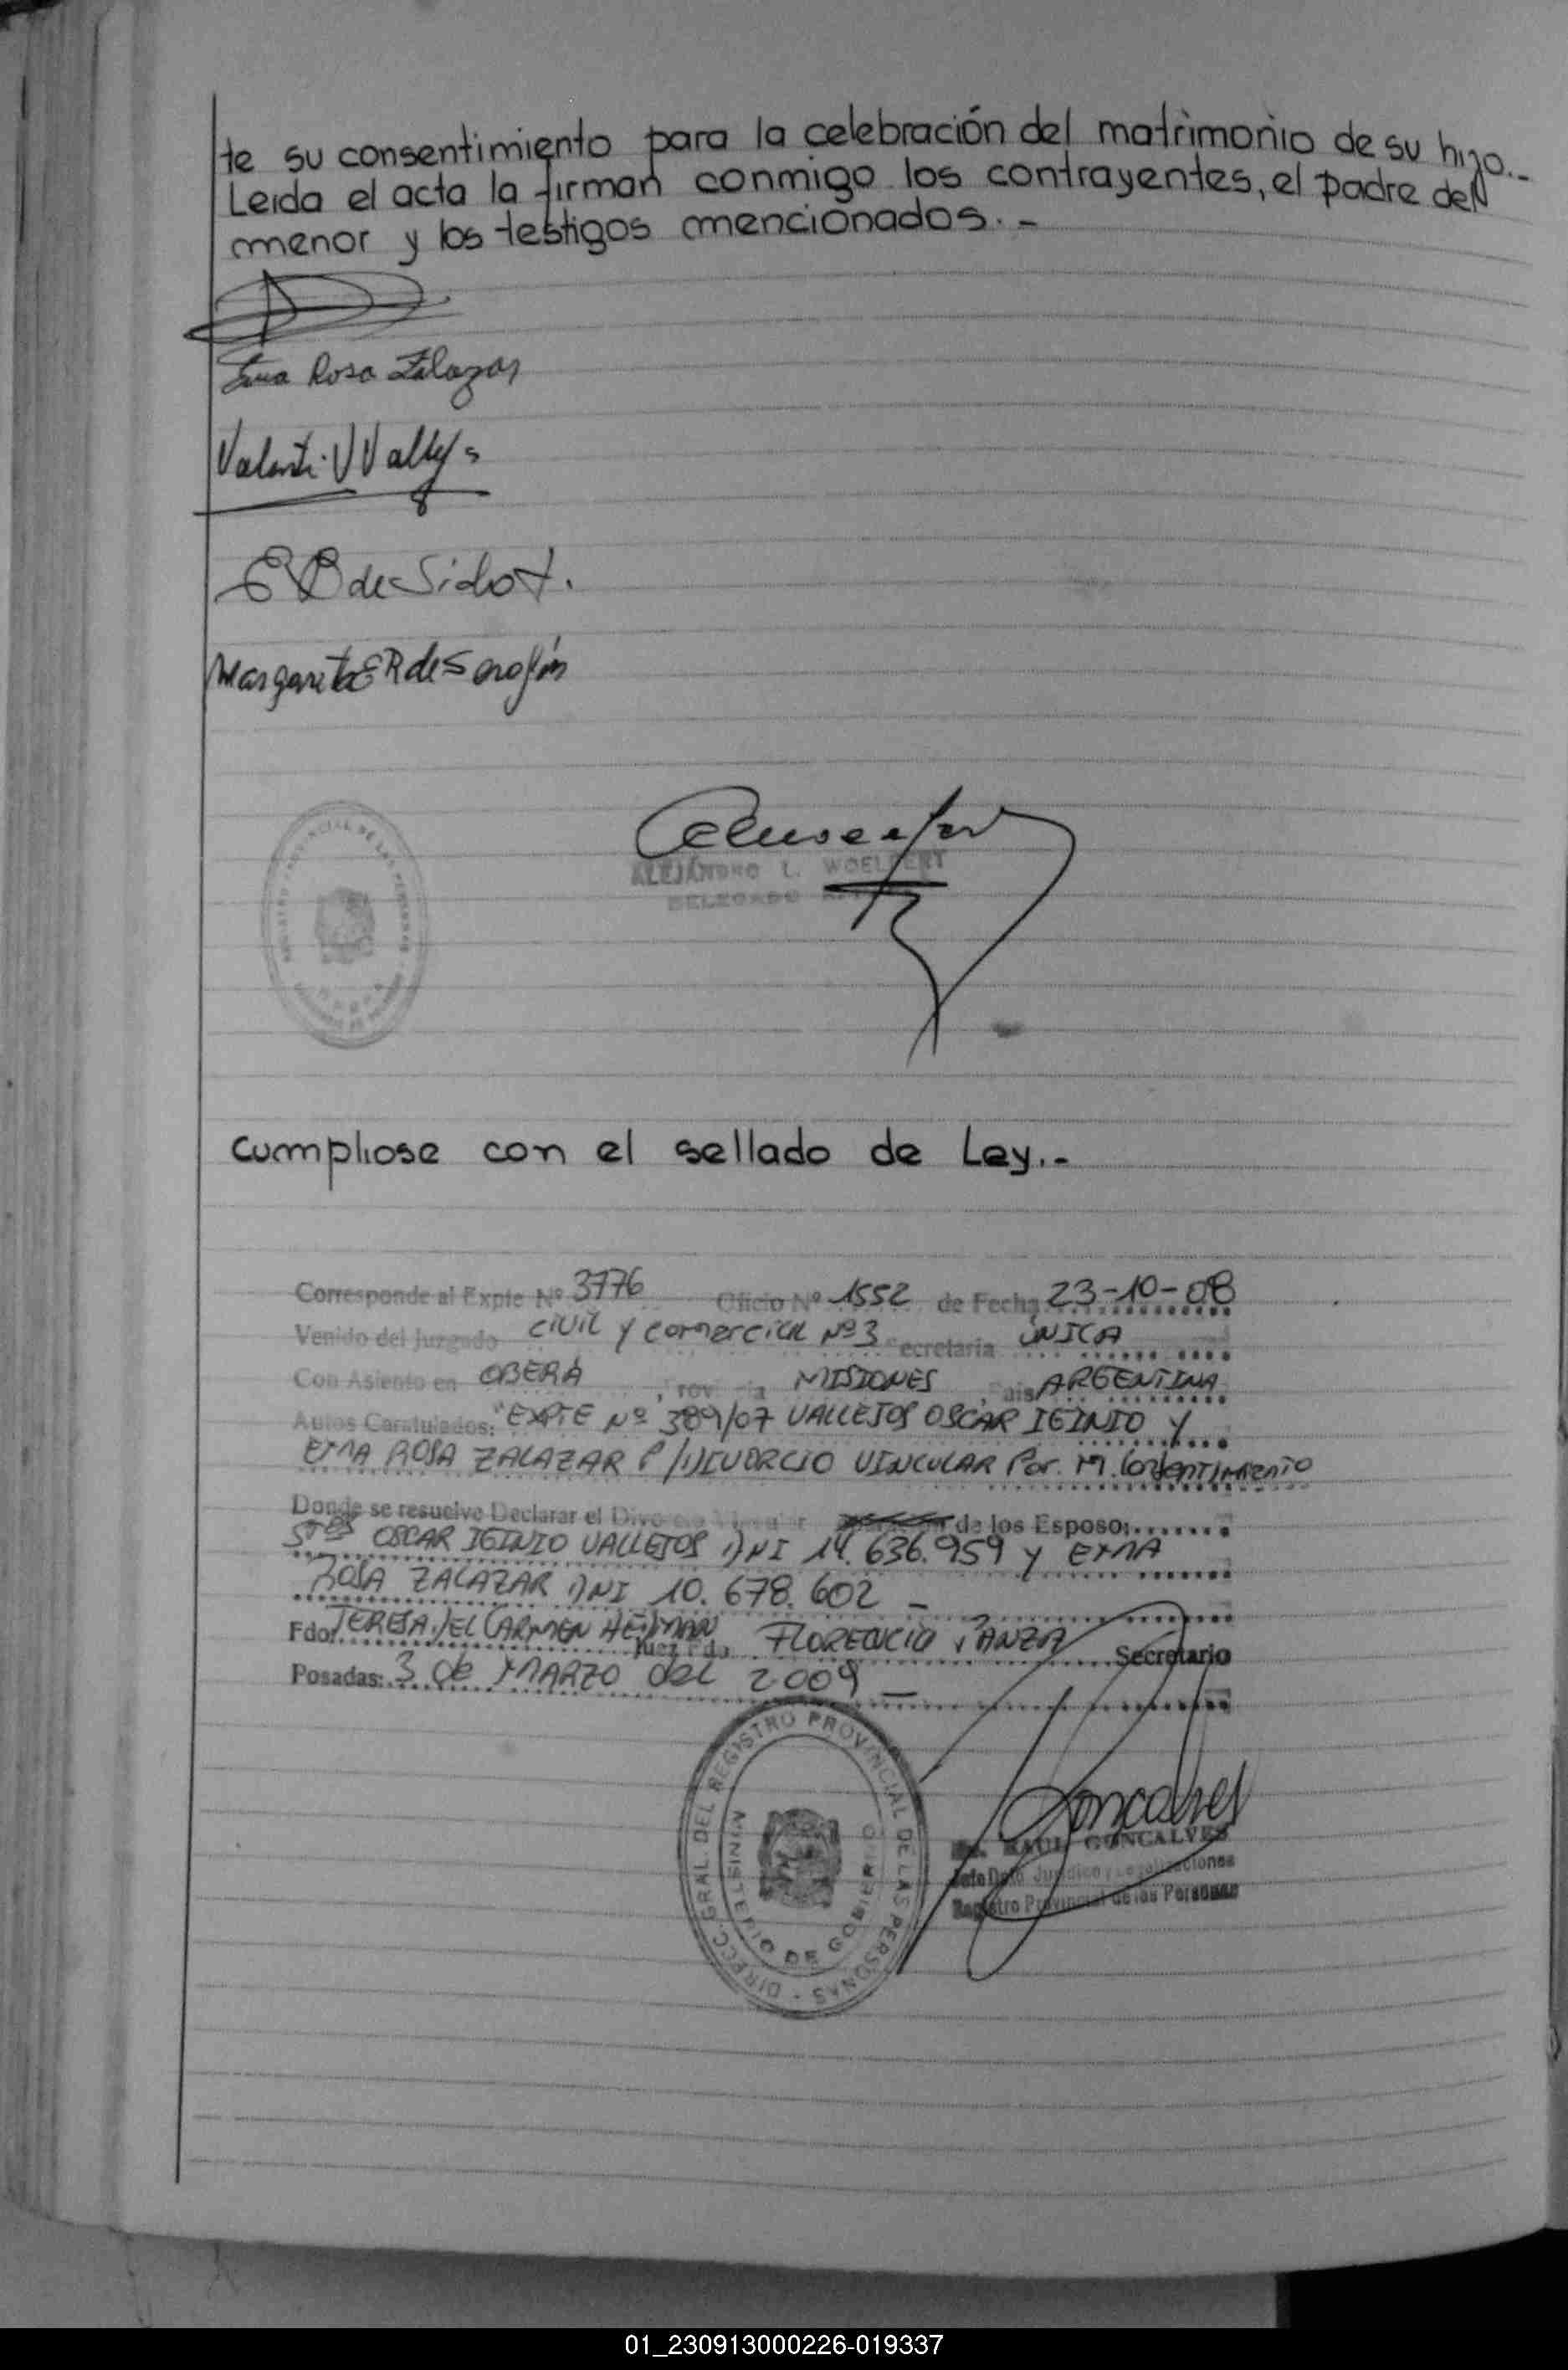 te su consentimiento para la celebración del matrimonio de su hijo.-
Leida el acta la firman conmigo los contrayentes, el padre del
menor y los testigos mencionados.-
Ema Rosa Zalazar
Valentin V Vallejos
E B de Sidot.
Margarita E R de Serafin
ALEJANDRO L. WOELFERT
DELEGADO
Cumpliose con el sellado de Ley.-
Corresponde al Expte Nº 3776 Oficio Nº 1552 de Fecha 23-10-08
Venido del Juzgado CIVIL Y COMERCIAL Nº 3 Secretaria ÚNICA
Con Asiento en OBERÁ, Provincia MISIONES, Pais ARGENTINA
Autos Caratulados: "EXPTE Nº 389/07 VALLEJOS OSCAR IGINIO Y
EMA ROSA ZALAZAR P/DIVORCIO VINCULAR Por M. CONSENTIMIENTO
Donde se resuelve Declarar el Divorcio Vincular de los Esposo:
Sres OSCAR IGINIO VALLEJOS DNI 14.636.959 Y EMA
ROSA ZALAZAR DNI 10.678.602 -
Fdo: TERESA DEL CARMEN HEDMAN Juez Fdo FLORENCIA PANZA Secretario
Posadas: 3 de MARZO del 2009 -
DIRECC. GRAL. DEL REGISTRO PROVINCIAL DE LAS PERSONAS -
MINISTERIO DE GOBIERNO
Goncalves
Dr. RAUL GONCALVES
Jefe Dpto Juridico y Legalizaciones
Registro Provincial de las Personas
01_230913000226-019337